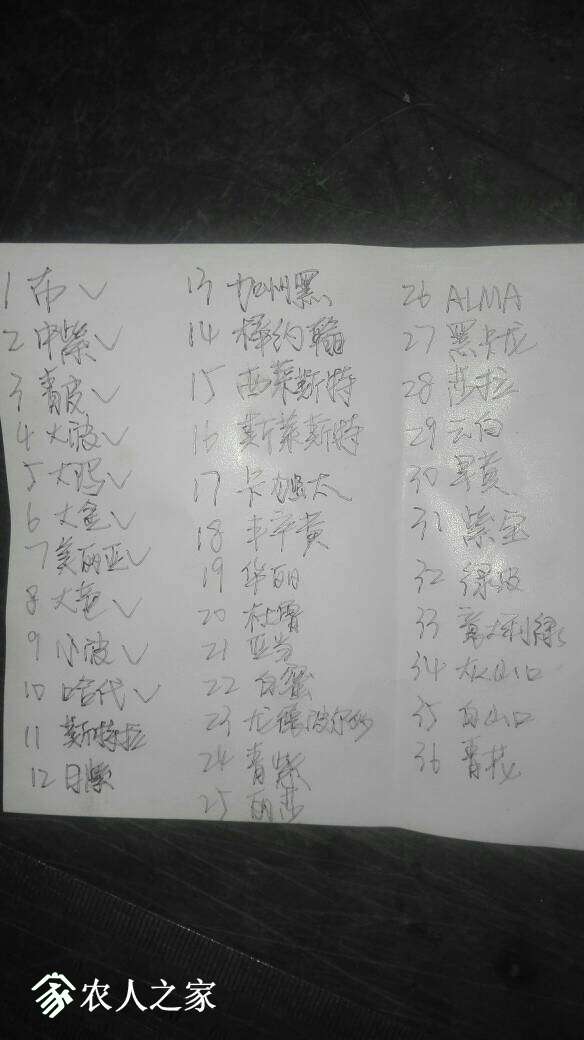 1 布✓
2 中紫✓
3 青皮✓
4 大波✓
5 大玛✓
6 大金✓
7 美丽亚✓
8 大芭✓
9 小波✓
10 哈代✓
11 斯特拉
12 日紫
13 加州黑
14 棒约翰
15 西莱斯特
16 斯莱斯特
17 卡加太
18 丰产黄
19 华丽
20
21 亚当
22 白蜜
23 尤德波尔沙
24 青紫
25 丽莎
26 ALMA
27 黑卡龙
28 莎拉
29 云白
30 早黄
31 紫宝
32 绿波
33 意大利绿
34 大山口
35 白山口
36 青花
农人之家